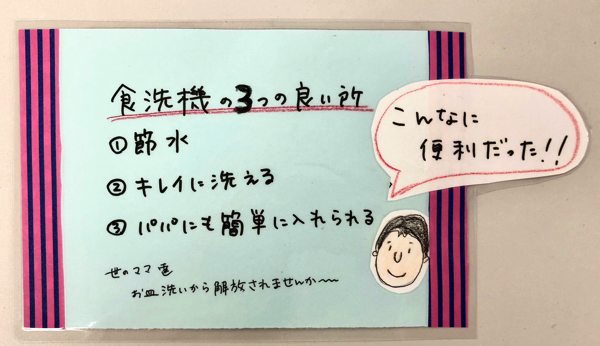 食洗機の3つの良い所
①節水
②キレイに洗える
③パパにも簡単に入れられる
世のママ達
お皿洗いから解放されませんか〜〜
こんなに
便利だった!!